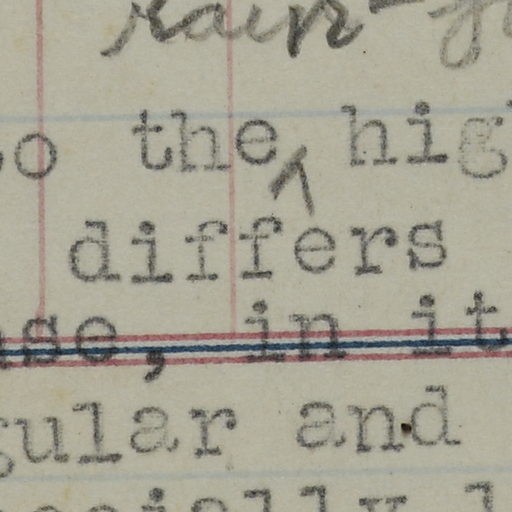 rain-
the ^ hig
differs
in it
gular and